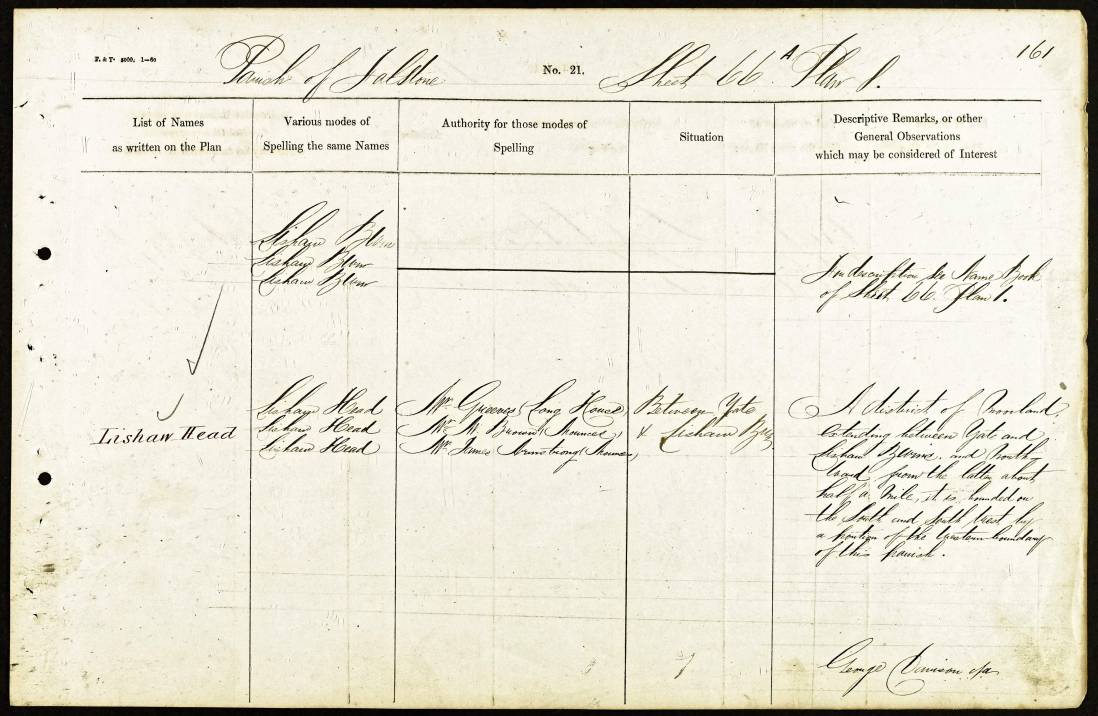 161
F. & T. 5000. 1—60
Parish of Falstone No. 21. Sheet 66 A Plan 1.
List of Names
as written on the Plan
Various modes of
Spelling the same Names
Authority for those modes of
Spelling
Situation
Descriptive Remarks, or other
General Observations
which may be considered of Interest
Lishaw Burn
Lishaw Burn
Lishaw Burn
For description see Name Book
of Sheet 66. Plan 1.
Lishaw Head
Lishaw Head
Lishaw Head
Lishaw Head
Mr. Greener (Long House)
Mr. W. Brown (
Mr. James Armstrong (
Between Yate
& Lishaw Burn
A district of Moorland,
extending between Yate and
Lishaw Burns. and North-
ward from the latter about
half a Mile, it is bounded on
the South and South West by
a portion of the Western boundary
of this parish.
George Davison c/a